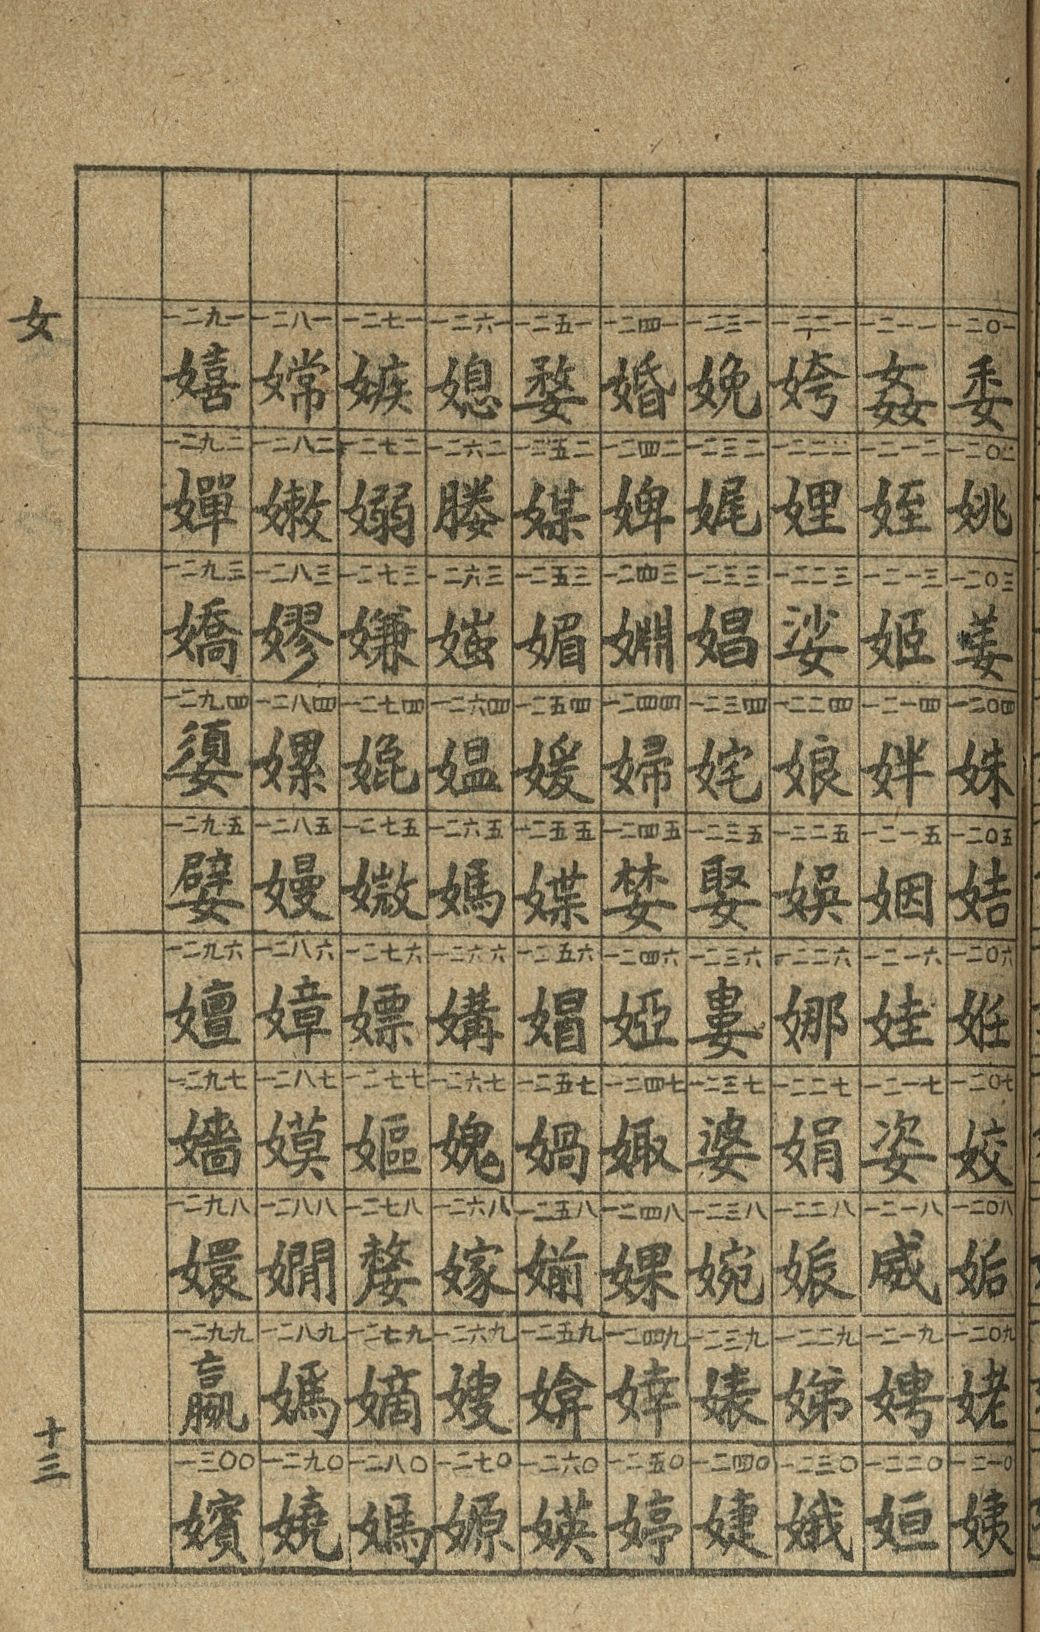 女
一二〇一 委
一二〇二 姚
一二〇三 姜
一二〇四 姝
一二〇五 姞
一二〇六 姙
一二〇七 姣
一二〇八 姤
一二〇九 姥
一二一〇 姨
一二一一 姦
一二一二 姪
一二一三 姬
一二一四 姅
一二一五 姻
一二一六 娃
一二一七 姿
一二一八 威
一二一九 娉
一二二〇 姮
一二二一 姱
一二二二 娌
一二二三 娑
一二二四 娘
一二二五 娛
一二二六 娜
一二二七 娟
一二二八 娠
一二二九 娣
一二三〇 娥
一二三一 娩
一二三二 娓
一二三三 娼
一二三四 姹
一二三五 娶
一二三六 婁
一二三七 婆
一二三八 婉
一二三九 婊
一二四〇 婕
一二四一 婚
一二四二 婢
一二四三 婣
一二四四 婦
一二四五 婪
一二四六 婭
一二四七 娵
一二四八 婐
一二四九 婞
一二五〇 婷
一二五一 婺
一二五二 媒
一二五三 媚
一二五四 媛
一二五五 媟
一二五六 媢
一二五七 媧
一二五八 媊
一二五九 媕
一二六〇 媖
一二六一 媳
一二六二 媵
一二六三 媸
一二六四 媼
一二六五 媽
一二六六 媾
一二六七 媿
一二六八 嫁
一二六九 嫂
一二七〇 嫄
一二七一 嫉
一二七二 嫋
一二七三 嫌
一二七四 媲
一二七五 媺
一二七六 嫖
一二七七 嫗
一二七八 嫠
一二七九 嫡
一二八〇 嫣
一二八一 嫦
一二八二 嫩
一二八三 嫪
一二八四 嫘
一二八五 嫚
一二八六 嫜
一二八七 嫫
一二八八 嫻
一二八九 嬀
一二九〇 嬈
一二九一 嬉
一二九二 嬋
一二九三 嬌
一二九四 嬃
一二九五 嬖
一二九六 嬗
一二九七 嬙
一二九八 嬛
一二九九 嬴
一三〇〇 嬪
十三